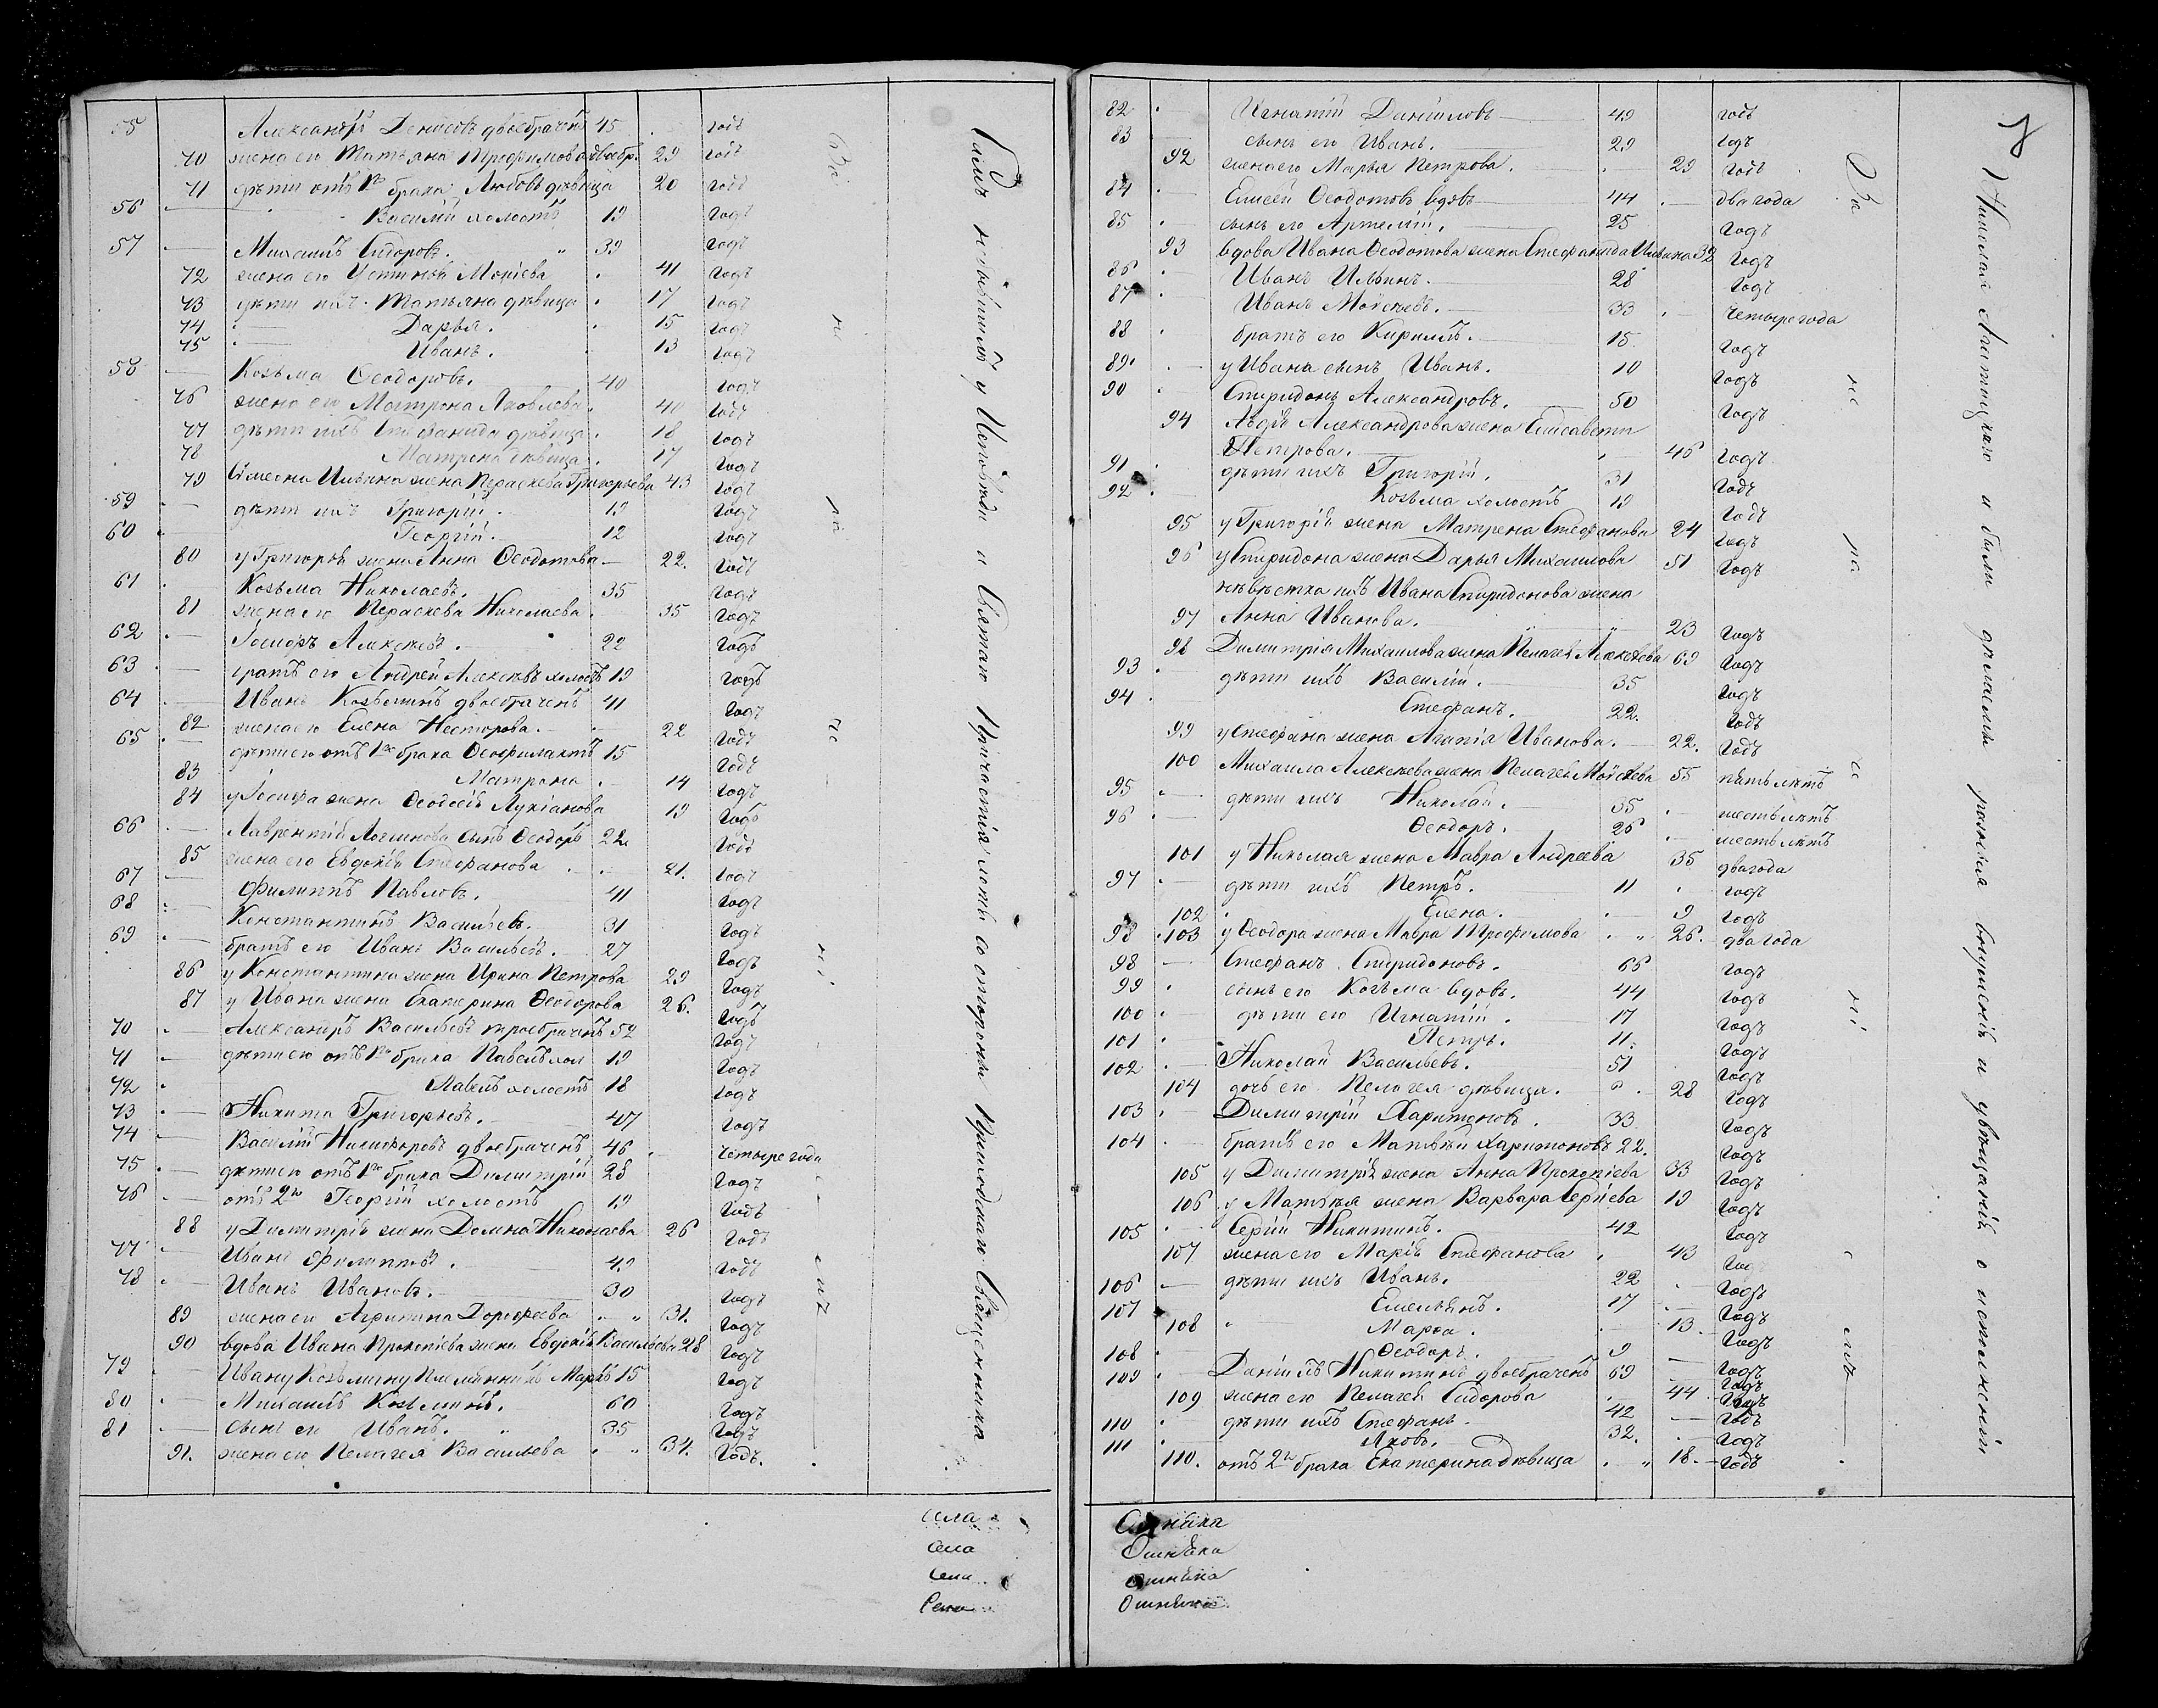 55 Александръ Денисовъ двоебраченъ 45 годъ
70 жена его Татьяна Трофимова двоебр. 29 годъ
71 дѣти отъ 1го брака Любовь дѣвица 20 годъ
56 Василій холостъ 19 годъ
57 Михаилъ Сидоровъ. 39 годъ
72 жена его Устинія Мокіева 41 годъ
73 дѣти ихъ. Татьяна дѣвица 17 годъ
74 Дарья. 15 годъ
75 Иванъ. 13 годъ
58 Козьма Ѳеодоровъ. 40 годъ
76 жена его Матрона Яковлева. 40 годъ
77 дѣти ихъ Стефанида дѣвица. 18 годъ
78 Матрона дѣвица. 17 годъ
79 Симеона Ильина жена Параскева Григорьева 43 годъ
59 дѣти ихъ Григорій. 19 годъ
60 Георгій. 12 годъ
80 у Григорія жена Анна Ѳеодотова 22. годъ
61 Козьма Николаевъ. 35 годъ
81 жена его Параскева Николаева. 35 годъ
62 Іосифъ Алексѣевъ. 22 годъ
63 братъ его Андрей Алексѣевъ холостъ 19 годъ
64 Иванъ Козьминъ двоебраченъ 41 годъ
82 жена его Елена Несторова. 22 годъ
65 дѣти его отъ 1го брака Ѳеофилактъ 15 годъ
83 Матрона. 14 годъ
84 у Іосифа жена Ѳеодосія Лукіанова 19 годъ
66 Лаврентія Логинова сынъ Ѳеодоръ 22. годъ
85 жена его Евдокія Стефанова 21. годъ
67 Филиппъ Павловъ. 41 годъ
68 Константинъ Васильевъ. 31 годъ
69 братъ его Иванъ Васильевъ. 27 годъ
86 у Константина жена Ирина Петрова 29 годъ
87 у Ивана жена Екатерина Ѳеодорова 26. годъ
70 Александръ Васильевъ троебраченъ 52 годъ
71 дѣти его отъ 1го брака Павелъ хол 19 годъ
72 Павелъ холостъ 18 годъ
73 Никита Григорьевъ. 47 годъ
74 Василій Никифоровъ двоебраченъ 46 четыре года
75 дѣти его отъ 1го брака Димитрій 28 годъ
76 отъ 2го Георгій холостъ 19 годъ
88 у Димитрія жена Домна Николаева 26 годъ
77 Иванъ Филипповъ. 49 годъ
78 Иванъ Ивановъ. 30 годъ
89 жена его Агрипина Дорофеева 31. годъ
90 вдова Ивана Прокопіева жена Евдокія Васильева 28 годъ
79 Ивану Козьмину племянникъ Маркъ 15 годъ
80 Михаилъ Козьминъ. 60 годъ
81 сынъ его Иванъ. 35 годъ
91. жена его Пелагея Васильева 34. годъ.
Всѣ на ра че ні емъ
Самъ не бывшимъ у Исповѣди и Святаго Причастія лѣтъ со стороны Приходскаго Священника
села
села
села
села
82 Игнатій Даниловъ 49 годъ
83 сынъ его Иванъ. 29 годъ
92 жена его Марья Петрова. 29 годъ
84 Елисей Ѳеодотовъ вдовъ 44 два года
85 сынъ его Артемій. 25 годъ
93 вдова Ивана Ѳеодотова жена Стефанида Ильина 32 годъ
86 Иванъ Ильинъ. 28 годъ
87 Иванъ Моисѣевъ. 33 четыре года
88 братъ его Кириллъ. 15 годъ
89 у Ивана сынъ Иванъ. 10 годъ
90 Спиридонъ Александровъ. 50 годъ
94 Авдія Александрова жена Елисавета
Петрова. 46 годъ
91 дѣти ихъ Григорій. 31 годъ
92 Козьма холостъ 19 годъ
95 у Григорія жена Матрена Стефанова 24 годъ
96 у Спиридона жена Дарья Михаилова 51 годъ
невѣстка ихъ Ивана Спиридонова жена
97 Анна Иванова. 23 годъ
98 Димитрія Михаилова жена Пелагея Алексѣева 69 годъ
93 дѣти ихъ Василій. 35 годъ
94 Стефанъ. 22. годъ
99 у Стефана жена Агапія Иванова. 22. годъ
100 Михаила Алексѣева жена Пелагея Моисѣева 55 пять лѣтъ
95 дѣти ихъ Николай. 35 шесть лѣтъ
96 Ѳеодоръ. 26 шесть лѣтъ
101 у Николая жена Мавра Андреева 35 два года
97 дѣти ихъ Петръ. 11 годъ
102 Елена. 9 годъ
98 103 у Ѳеодора жена Мавра Трофимова 26. два года
98 Стефанъ Спиридоновъ. 66 годъ
99 сынъ его Козьма вдовъ. 44 годъ
100 дѣти его Игнатій. 17 годъ
101 Петръ. 11. годъ
102 Николай Васильевъ. 51 годъ
104 дочь его Пелагея дѣвица. 28 годъ
103 Димитрій Харитоновъ. 33 годъ
104 братъ его Матвѣй Харитоновъ 22. годъ
105 у Димитрія жена Анна Прокопіева 33 годъ
106 у Матвѣя жена Варвара Сергіева 19 годъ
105 Сергій Никитинъ. 42 годъ
107 жена его Марія Стефанова 43 годъ
106 дѣти ихъ Иванъ. 22 годъ
107 Емельянъ. 17 годъ
108 Марѳа. 13 годъ
108 Ѳеодоръ. 9 годъ
109 Даніилъ Никитинъ двоебраченъ 69 годъ
109 жена его Пелагея Сидорова 44 годъ
110 дѣти ихъ Стефанъ. 42 годъ
111 Яковъ. 32. годъ
110. отъ 2го брака Екатерина дѣвица 18. годъ
и были дѣлаемы
внушенія и увѣщанія о исполненіи
Ошняка
Ошняка
Ошняка
Ошняка